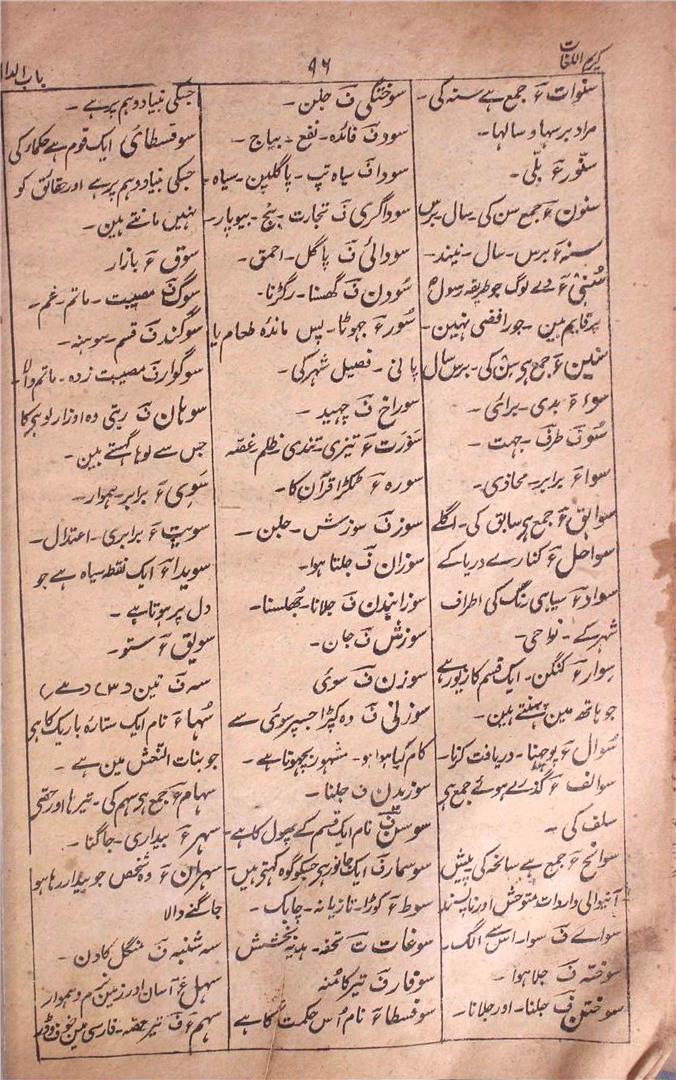 کریم اللغات
۹۶
باب الدال
سنوات ء جمع ہے سنہ کی ۔
مراد برسہا و سالہا۔
سنّور ء بلّی ۔
سنون ء جمع سن کی ۔ سال ۔ برس
سنہ ء برس ۔ سال ۔ نیند ۔
سُنّی ء دے لوگ جو طریقہ رسول
پر قایم ہین ۔ جو رافضی نہین ۔
سنین ء جمع ہی سن کی ۔ برس سال
سوء ء بدی ۔ برائی ۔
سُون ف طرف ۔ جہت ۔
سوا ء برابر ۔ محاذی ۔
سوابق ء جمع ہی سابق کی ۔ اگلے
سواحل ء کنارے دریا کے
سواد ء سیاہی رنگ کی اطراف
شہر کے ۔ نواحی ۔
سِوار ء کنگن ۔ ایک قسم کا زیور ہے
جو ہاتھ مین پہنتے ہین ۔
سُوال ء پوچھنا ۔ دریافت کرنا ۔
سوالف ء گذرے ہوئے جمع ہی
سلف کی ۔
سوانح ء جمع ہے سانحہ کی پیش
آنیوالی واردات متوحش اور ناپسند
سواے ف سوا ۔ اس سے الگ ۔
سوختہ ف جلا ہوا ۔
سوختن ف جلنا ۔ اور جلانا ۔
سوختگی ف جلن ۔
سود ف فائدہ ۔ نفع ۔ بیاج ۔
سودا ف سیاہ تپ ۔ پاگلپن ۔ سیاہ ۔
سوداگری ف تجارت ۔ بنج ۔ بیوپار ۔
سودائی ف پاگل ۔ احمق ۔
سُودن ف گھسنا ۔ رگڑنا ۔
سُور ء جہوٹا ۔ پس ماندہ طعام یا
پانی ۔ فصیل شہر کی ۔
سوراخ ف چہید ۔
سَورت ء تیزی ۔ تندی ۔ ظلم ۔ غصّہ
سورہ ء ٹکڑا قرآن کا ۔
سوز ف سوزش ۔ جلن ۔
سوزان ف جلتا ہوا ۔
سوزانیدن ف جلانا ۔ جُھلسنا ۔
سوزش ف جان ۔
سوزن ف سوئی
سوزنی ف وہ کپڑا جسپر سوئی سے
کام کیا ہوا ہو ۔ مشہور بچھونا ہے ۔
سوزیدن ف جلنا ۔
سوسن ف نام ایک قسم کے پھول کا ہے ۔
سوسمار ف ایک جانور ہی جسکو گوہ کہتی ہین ۔
سوط ء کوڑا ۔ تازیانہ ۔ چابک ۔
سوغات ت تحفہ ۔ ہدیہ بخشش
سوفار ف تیر کا مُنہ
سوفسطا ء نام اُس حکمت کا ہے
جسکی بنیاد وہم پر ہے ۔
سوفسطائی ایک قوم ہے حکماء کی
جسکی بنیاد وہم پر ہے اور حقائق کو
نہین مانتے ہین ۔
سوق ء بازار
سوگ ف مصیبت ۔ ماتم ۔ غم ۔
سوگند ف قسم ۔ سوہنہ ۔
سوگوار ف مصیبت زدہ ۔ ماتم والا
سوہان ف ریتی وہ اوزار لوہی کا
جس سے لوہا گھستے ہین ۔
سَوِی ء برابر ۔ ہموار ۔
سویت ء برابری ۔ اعتدال ۔
سویدا ء ایک نقطہ سیاہ ہے جو
دل پر ہوتا ہے ۔
سویق ء ستو ۔
سہ ف تین
سُہا ء نام ایک ستارہ باریک کا ہی
جو بنات النعش مین ہے ۔
سہام ء جمع ہی سہم کی ۔ تیرہا اور حصّی
سہر ء بیداری ۔ جاگنا ۔
سہران ء وہ شخص جو بیدار رہا ہو
جاگنے والا
سہ شنبہ ف منگل کا دن ۔
سہل ء آسان اور زمین نرم و ہموار
سہم ء ف تیر حصّہ ۔ فارسی مین خوف و ڈر